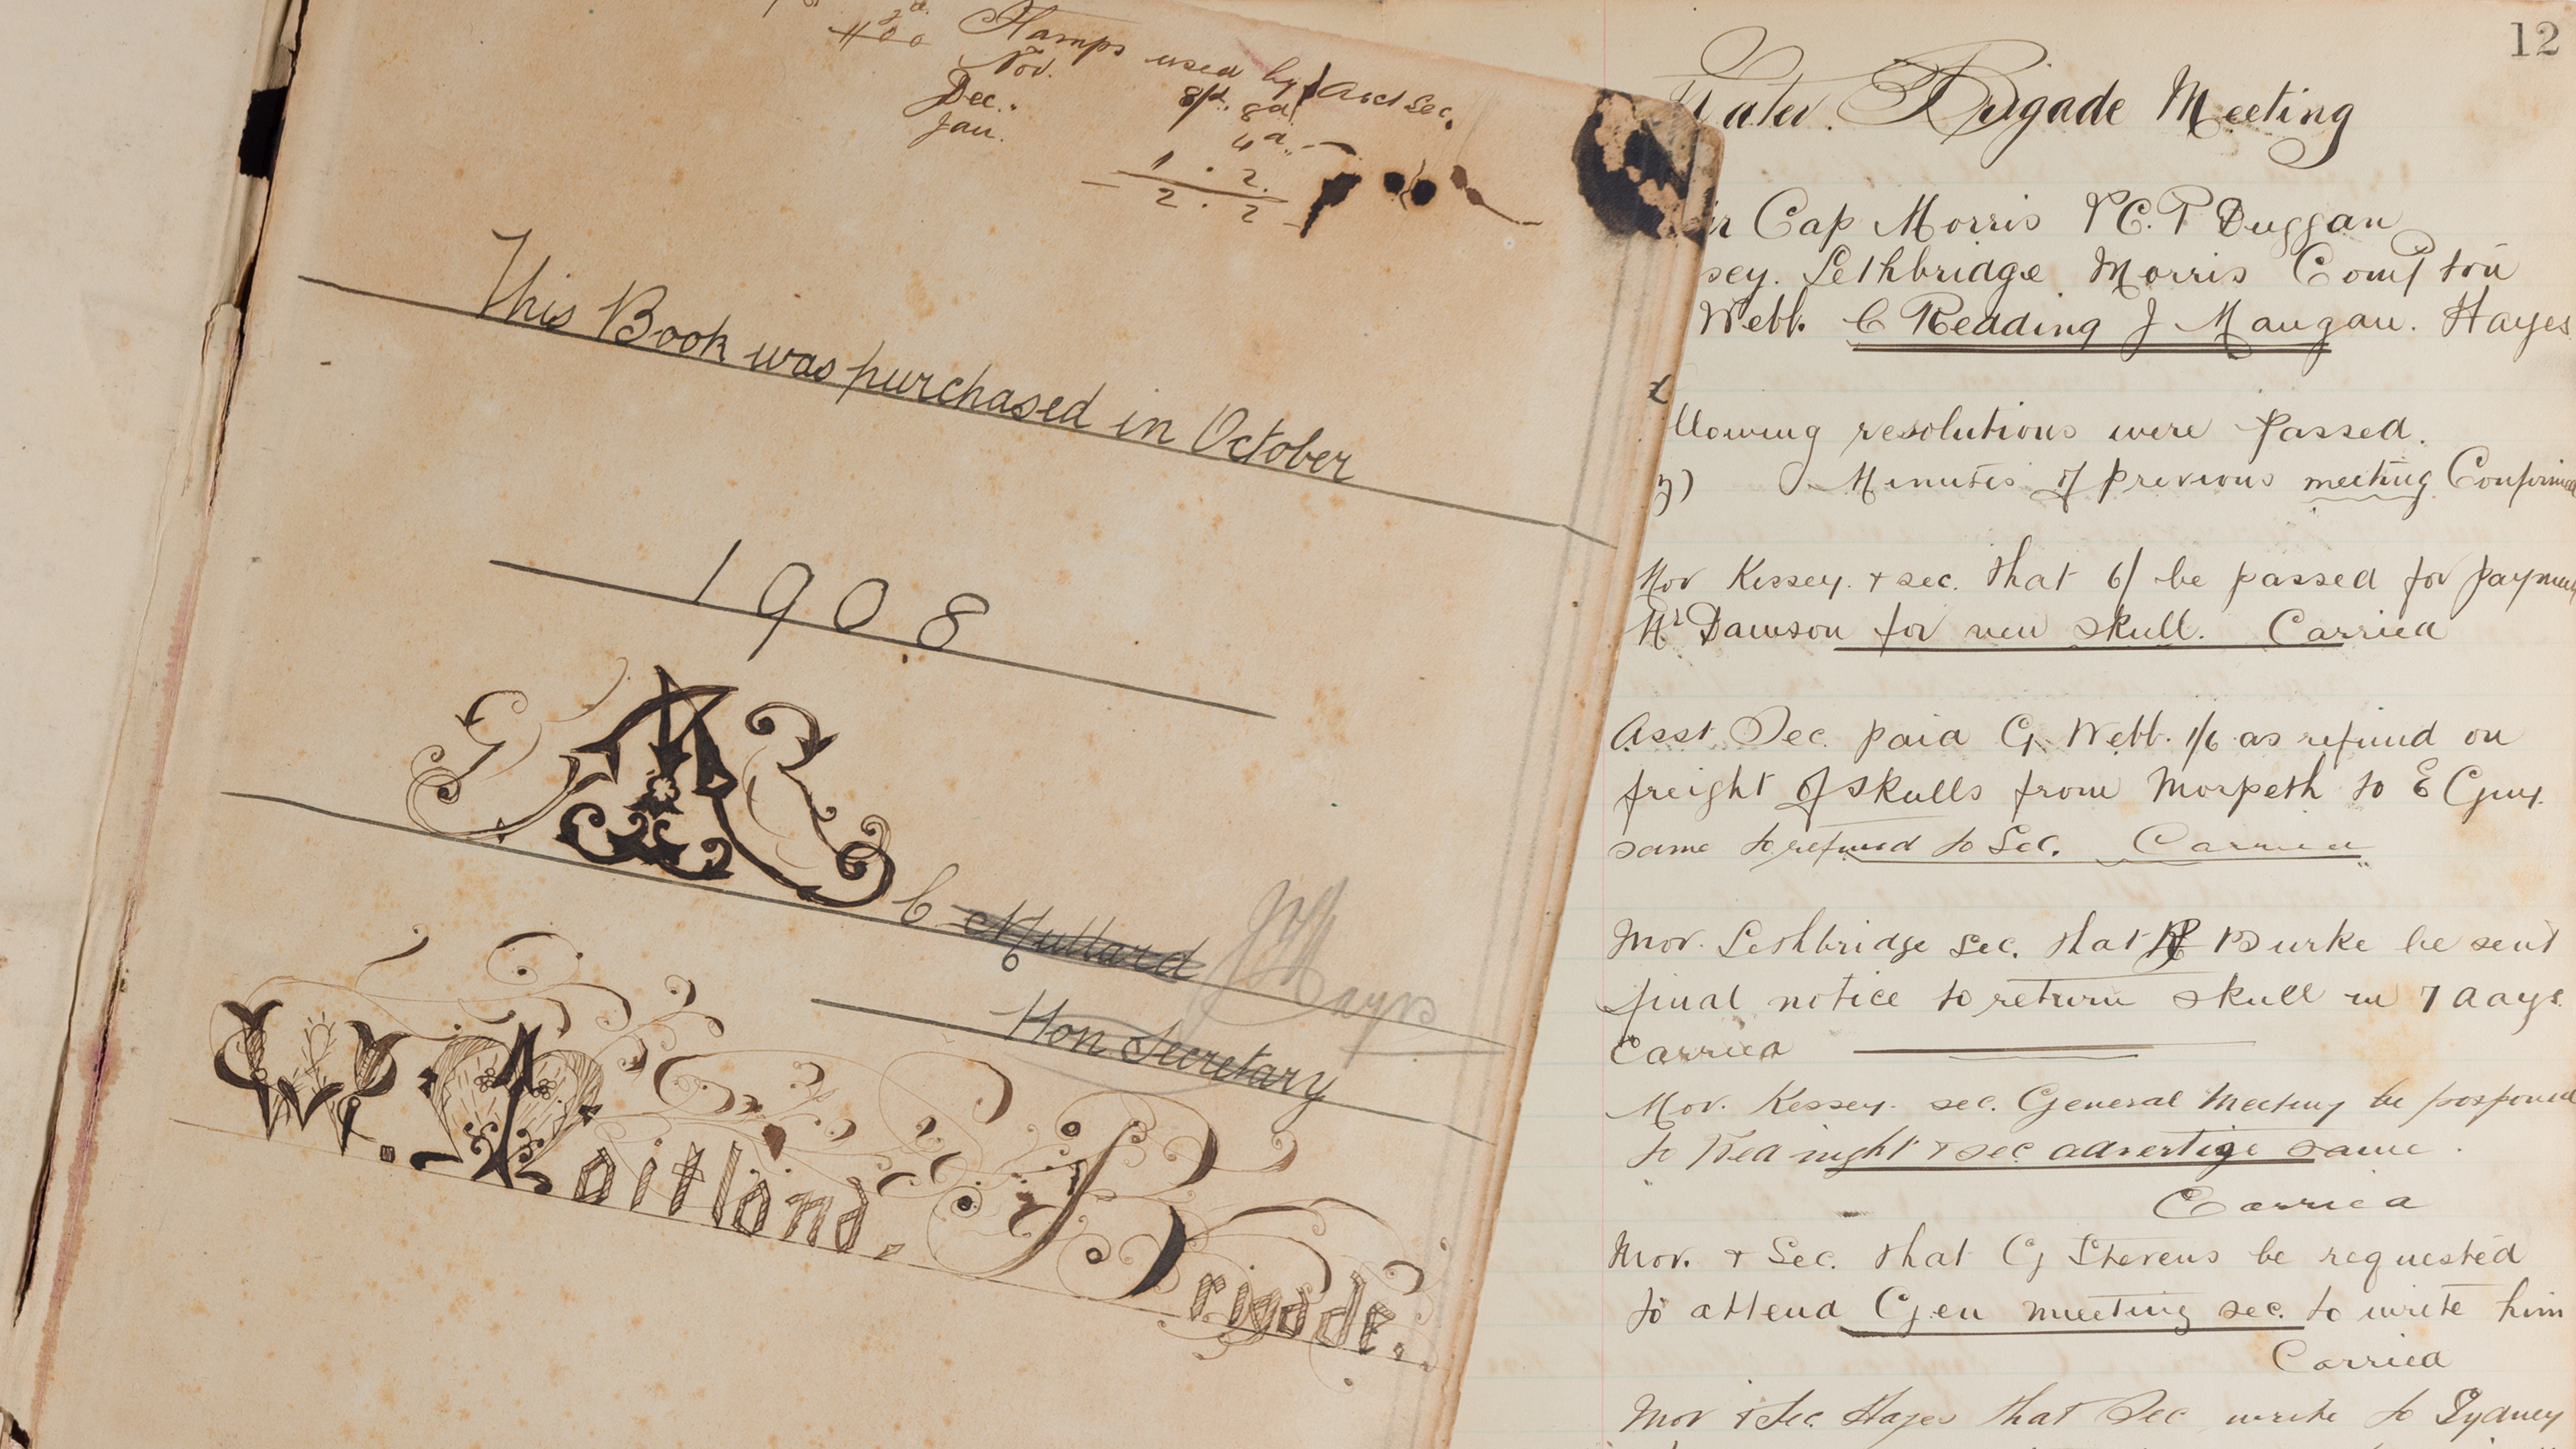 Stamps used by Asst Sec.
Nov.
Dec.. 8d
Jan. 4d
1 . 2.
2 . 2
This Book was purchased in October
1908
C Mullard
Hon Secretary
W. Maitland. Brigade.
12
Water Brigade Meeting
Cap Morris P C. T Duggan
sey. Lethbridge Morris Compton
Webb. C Redding J Mangan. Hayes
llowing resolutions were passed.
Minutes of previous meeting Confirmed
Mov Kessey. & sec. that 6/ be passed for payment
Mr Dawson for new skull. Carried
Asst. Sec. paid G. Webb. 1/6 as refund on
freight of skulls from Morpeth to E Guy.
same to refund to Sec. Carried
Mov. Lethbridge sec. that Burke be sent
final notice to return skull in 7 days.
Carried
Mov. Kessey. sec. General Meeting be postponed
to Wed night & sec advertige same.
Carried
Mov. & Sec. that G Stevens be requested
to attend Gen meeting sec. to write him
Carried
Mov & Sec. Hayes that Sec write to Sydney